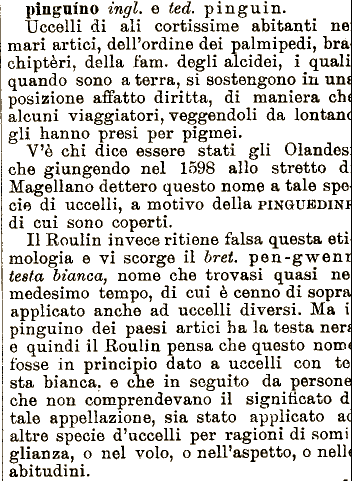 pinguino ingl. e ted. pinguin.
Uccelli di ali cortissime abitanti ne
mari artici, dell'ordine dei palmipedi, bra
chiptèri, della fam. degli alcidei, i quali
quando sono a terra, si sostengono in una
posizione affatto diritta, di maniera che
alcuni viaggiatori, veggendoli da lontano
gli hanno presi per pigmei.
V'è chi dice essere stati gli Olandes
che giungendo nel 1598 allo stretto d
Magellano dettero questo nome a tale spe
cie di uccelli, a motivo della PINGUEDINE
di cui sono coperti.
Il Roulin invece ritiene falsa questa eti
mologia e vi scorge il bret. pen-gwenn
testa bianca, nome che trovasi quasi ne
medesimo tempo, di cui è cenno di sopra
applicato anche ad uccelli diversi. Ma i
pinguino dei paesi artici ha la testa nera
e quindi il Roulin pensa che questo nome
fosse in principio dato a uccelli con te
sta bianca. e che in seguito da persone
che non comprendevano il significato d
tale appellazione, sia stato applicato ad
altre specie d'uccelli per ragioni di somi
glianza, o nel volo, o nell'aspetto, o nelle
abitudini.